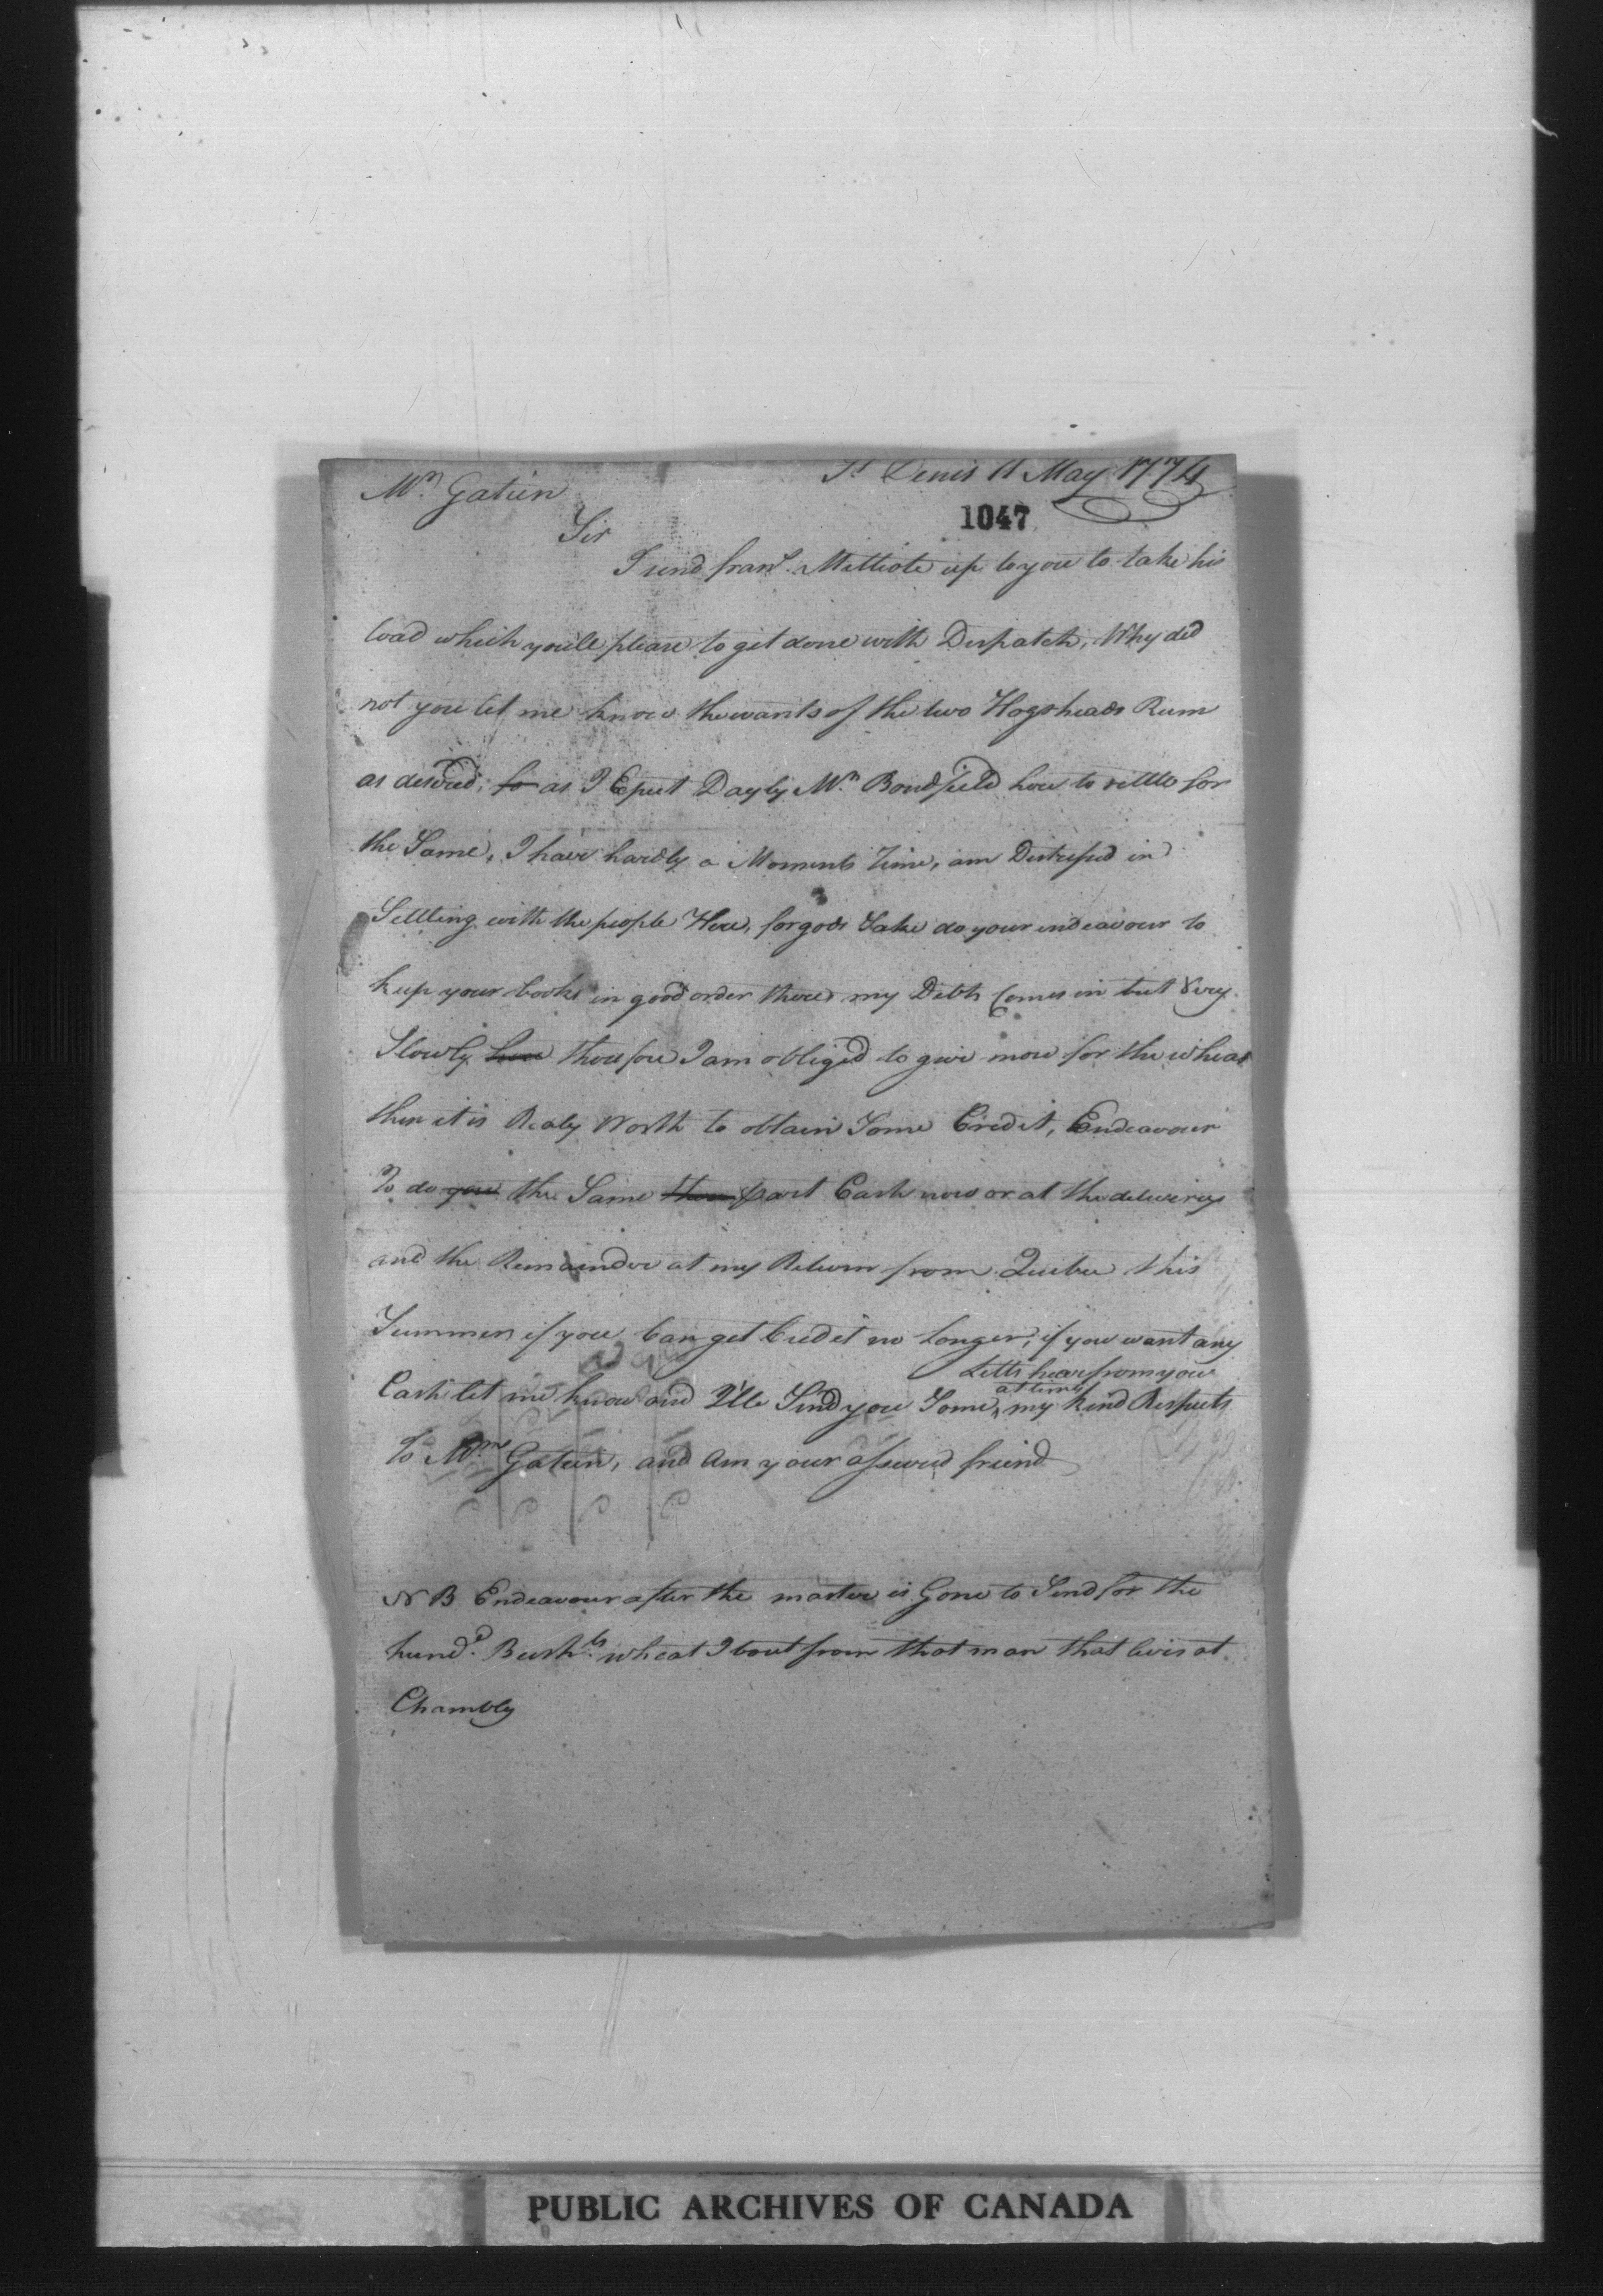 St Denis 11 May 1774
Mr. Gatien
1047
Sir
I send frans. Mettiote up to you to take his
load which you'll please to get done with Dispatch, Why did
not you let me know the wants of the two Hogsheads Rum
as desired; fo as I Expect Dayly Mr. Bondfield here to settle for
the Same, I have hardly a Moments time, am Distressed in
Settling with the people Here, for gods Sake do your endeavour to
keep your books in good order there my Debts Comes in but Very
Slowly here therefore I am obliged to give more for the wheat
then it is Realy Worth to obtain Some Credit, Endeavour
To do you the Same then part Cash now or at the delivery
and the Remainder at my Return from Quebec this
Summer if you Can get Credit no longer, if you want any
Letts hear from you
at times
Cash let me know and I'lle Send you Some, my kind Respects
To Mme Gatien, and am your assured friend
N B Endeavour after the master is Gone to Send for the
hund.d Bush.ls wheat I bout from that man that lives at
Chambly
PUBLIC ARCHIVES OF CANADA